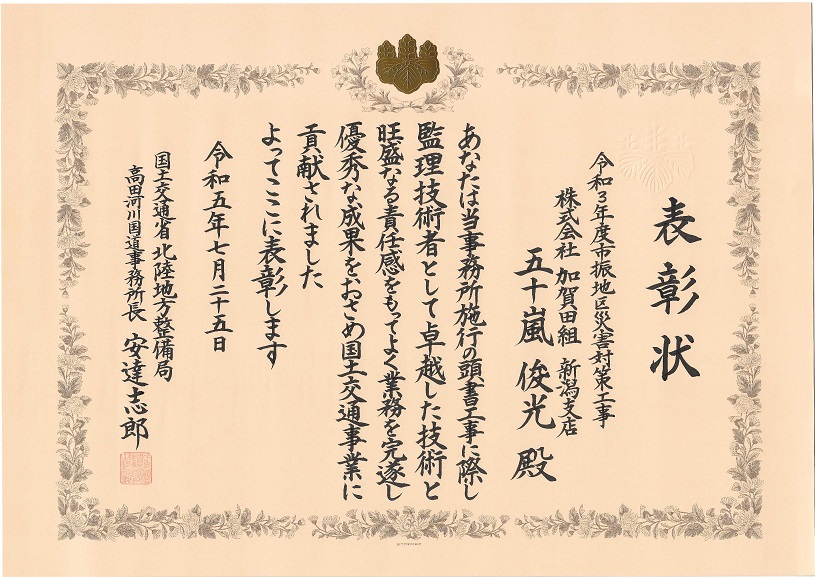 表彰状
令和3年度市振地区災害対策工事
株式会社 加賀田組 新潟支店
五十嵐 俊光 殿
あなたは当事務所施行の頭書工事に際し
監理技術者として卓越した技術と
旺盛なる責任感をもってよく業務を完遂し
優秀な成果をおさめ国土交通事業に
貢献されました
よってここに表彰します
令和五年七月二十五日
国土交通省 北陸地方整備局
高田河川国道事務所長 安達志郎